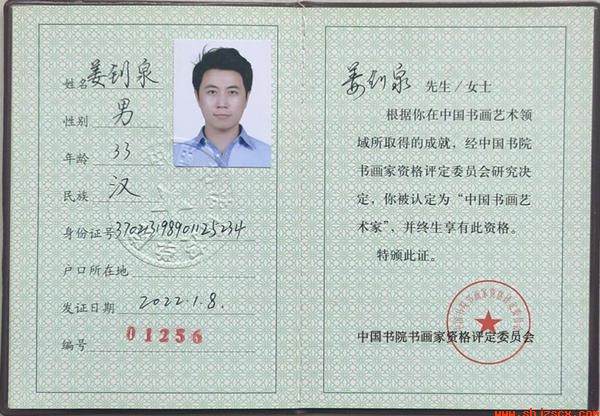 姓名 姜钊泉
性别 男
年龄 33
民族 汉
身份证号 370213198901125234
户口所在地
发证日期 2022.1.8.
编号 01256
姜钊泉 先生/女士
根据你在中国书画艺术领
域所取得的成就，经中国书院
书画家资格评定委员会研究决
定，你被认定为“中国书画艺
术家”，并终生享有此资格。
特颁此证。
中国书院书画家资格评定委员会
www.shjzscx.com